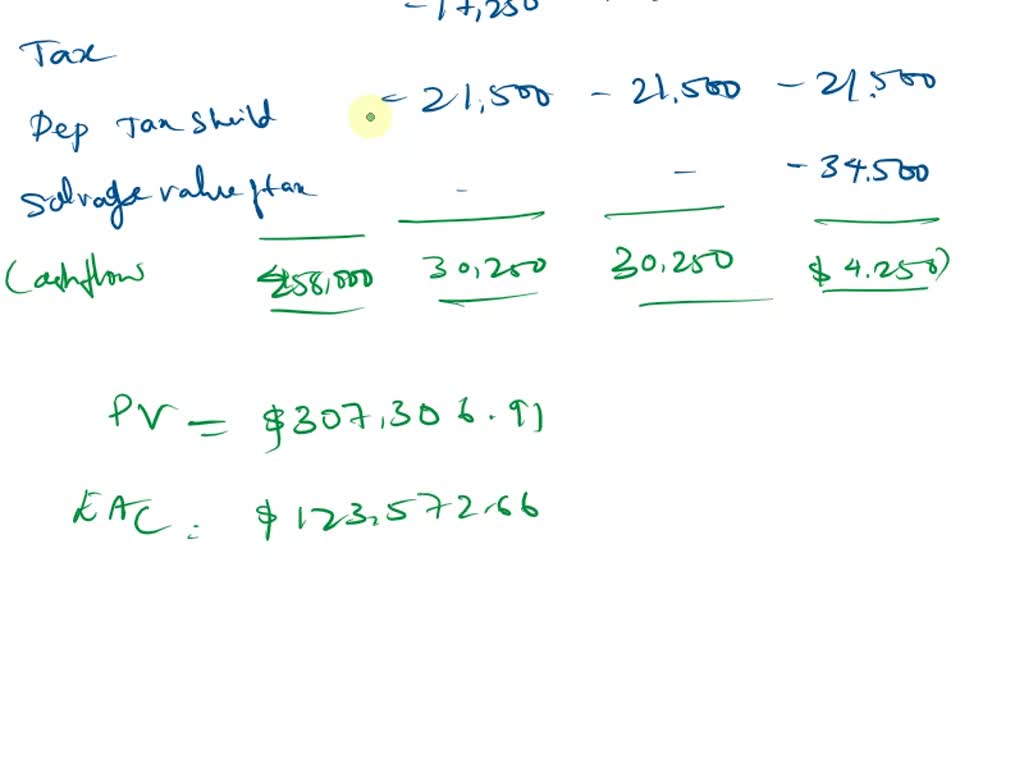 -17,250
Tax
Dep Tax Sheild - 21,500 - 21,500 - 21,500
Salvage value ftax - - - 34.500
Cashflow 258,000 30,250 30,250 $ 4.250)
PV = $307,306.91
EAC = $123,572.66